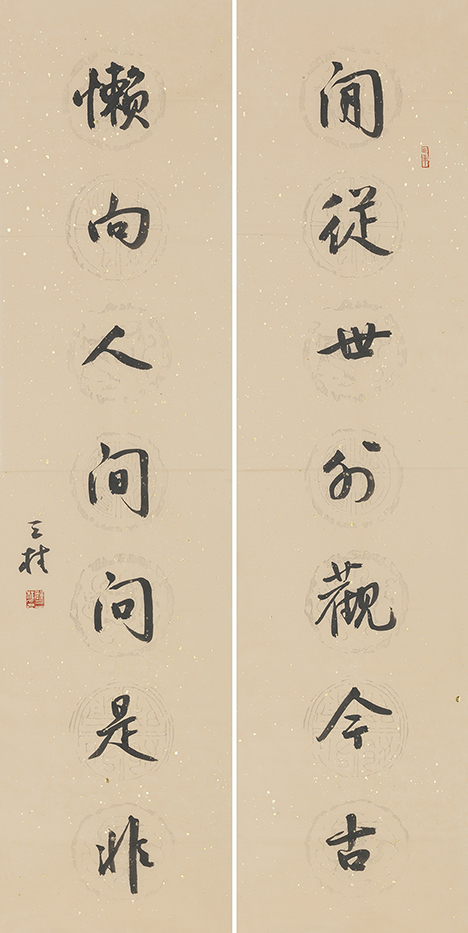 閒從世外觀今古
懶向人間問是非